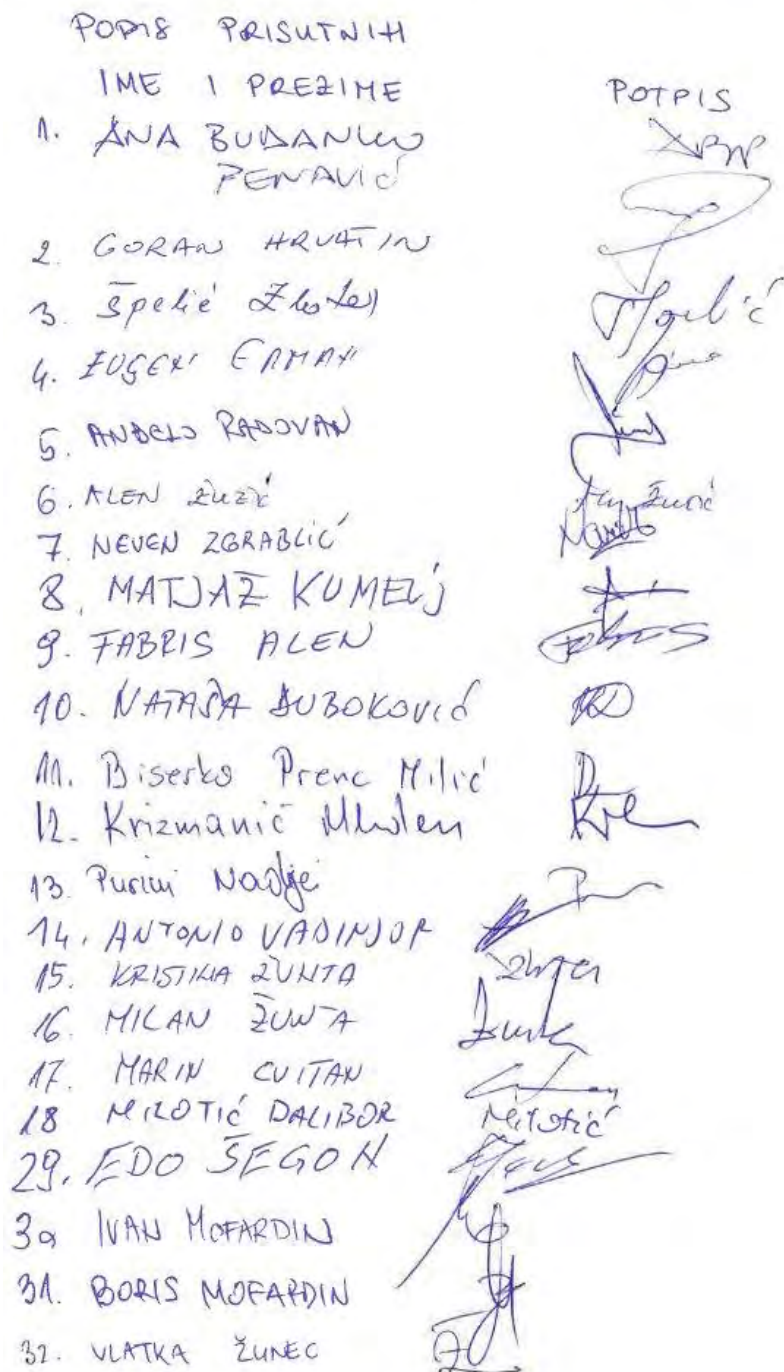 POPIS PRISUTNIH
IME I PREZIME POTPIS
1. ANA BUDANKO
PENAVIĆ
2. GORAN HRVATIN
3. Špelić Zlatko
4. EUGEN ERMAN
5. ANĐELO RADOVAN
6. ALEN ŽUZIĆ
7. NEVEN ZGRABLIĆ
8. MATJAŽ KUMELJ
9. FABRIS ALEN
10. NATAŠA DUBOKOVIĆ
11. Biserka Prenc Milić
12. Krizmanić Mladen
13. Purini Nadja
14. ANTONIO VADINJOF
15. KRISTINA ŽUNTA
16. MILAN ŽUNTA Žunta
17. MARIN CVITAN
18 MILOTIĆ DALIBOR Milotić
29. EDO ŠEGON
30 IVAN MOFARDIN
31. BORIS MOFARDIN
32. VLATKA ŽUNEC